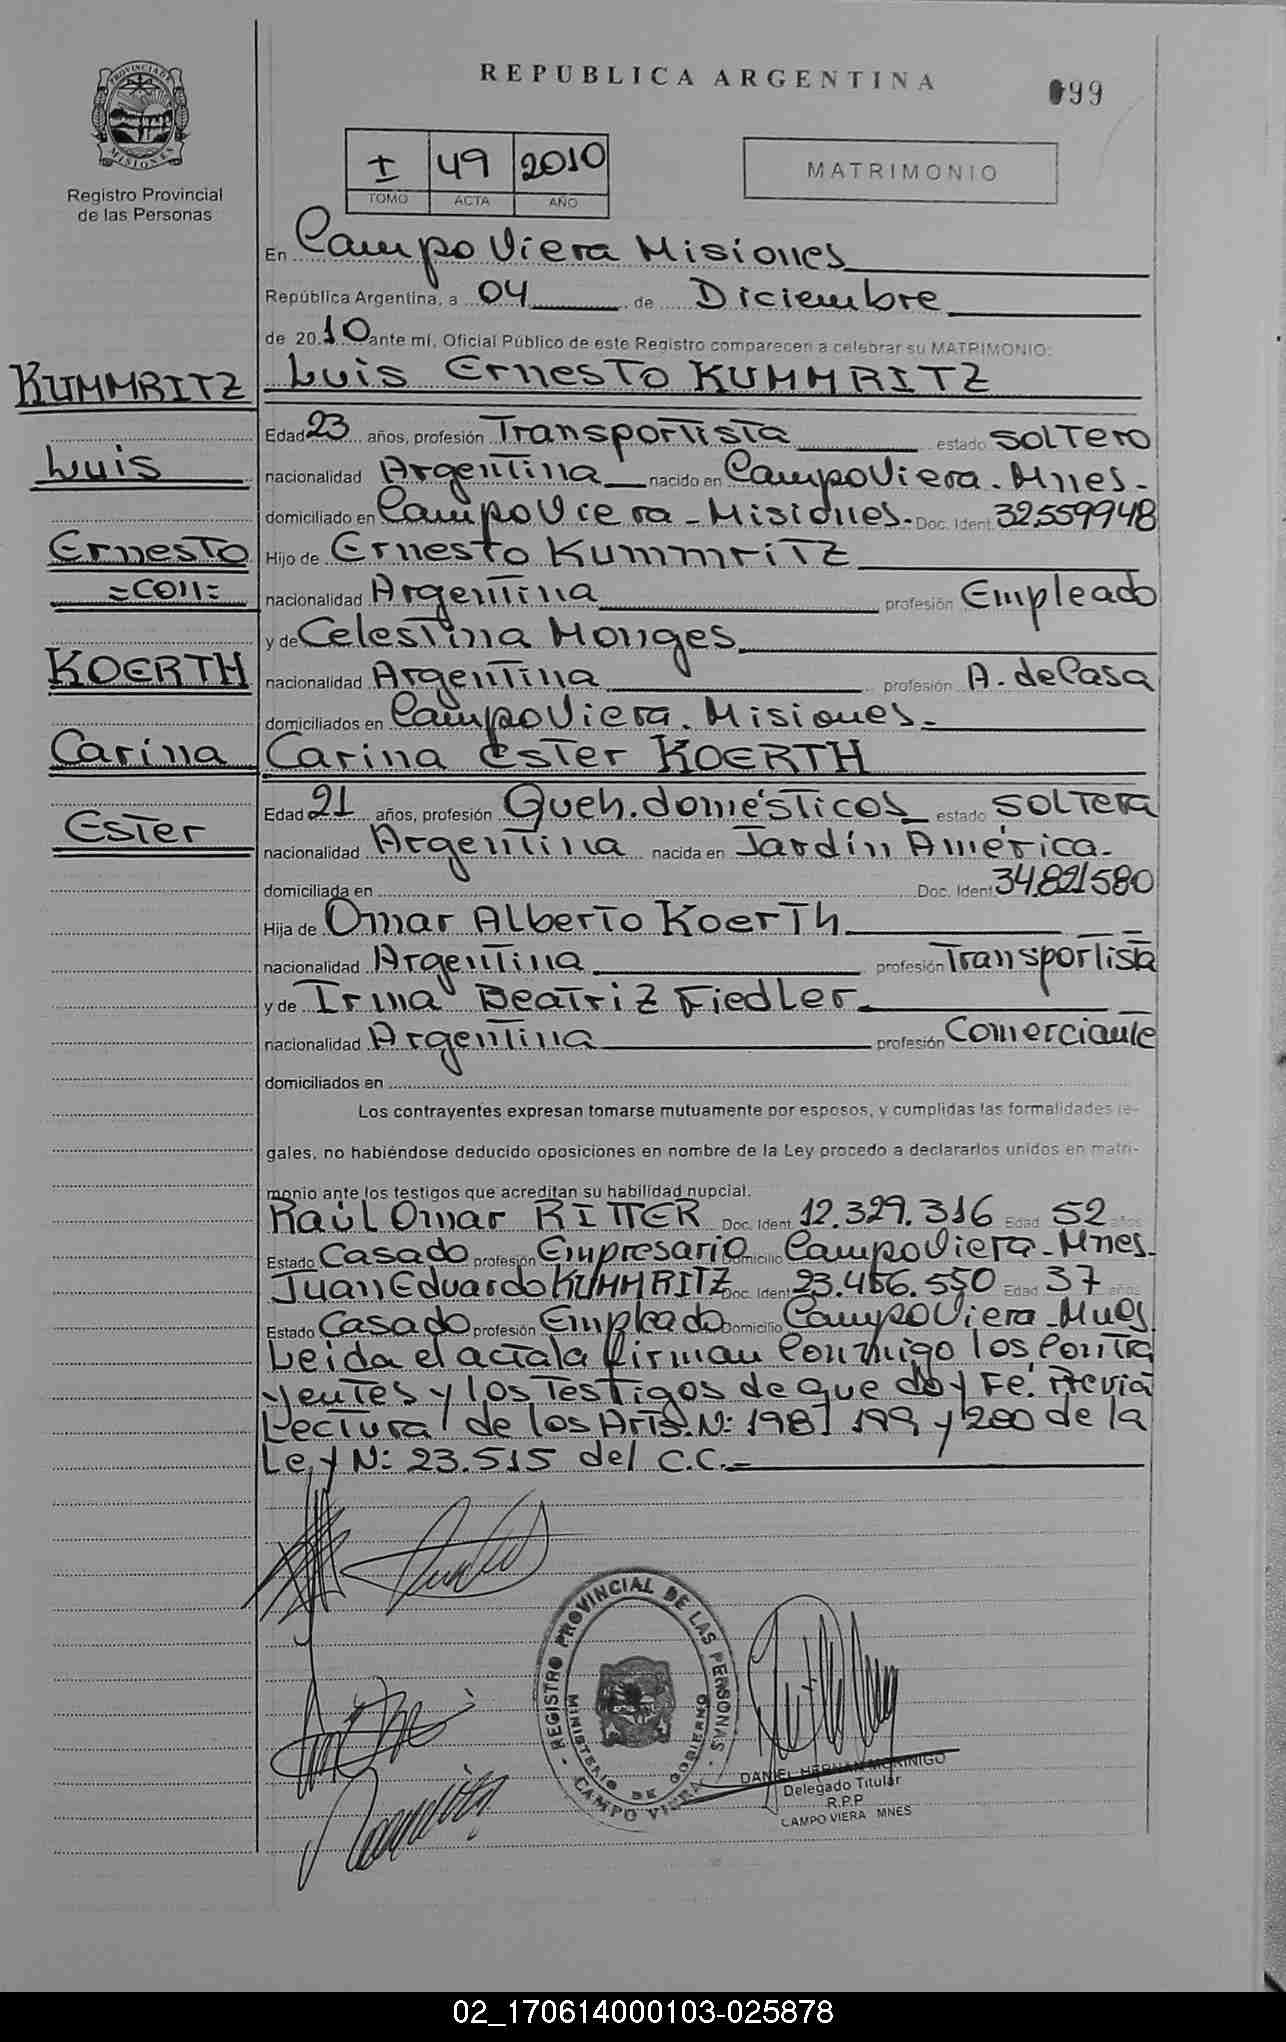 REPUBLICA ARGENTINA
099
PROVINCIA DE MISIONES
Registro Provincial
de las Personas
I 49 2010
TOMO ACTA AÑO
MATRIMONIO
En Campo Viera Misiones
República Argentina, a 04 de Diciembre
de 2010 ante mí, Oficial Público de este Registro comparecen a celebrar su MATRIMONIO:
KUMMRITZ Luis Ernesto KUMMRITZ
Edad 23 años, profesión Transportista estado Soltero
Luis nacionalidad Argentina nacido en Campo Viera. Mnes.
domiciliado en Campo Viera - Misiones. Doc. Ident. 32.559948
Ernesto Hijo de Ernesto Kummritz
=con= nacionalidad Argentina profesión Empleado
y de Celestina Monges
KOERTH nacionalidad Argentina profesión A. de Casa
domiciliados en Campo Viera. Misiones.
Carina Carina Ester KOERTH
Edad 21 años, profesión Queh. domésticos estado Soltera
Ester nacionalidad Argentina nacida en Jardín América.
domiciliada en Doc. Ident. 34.821580
Hija de Omar Alberto Koerth
nacionalidad Argentina profesión Transportista
y de Irma Beatriz Fiedler
nacionalidad Argentina profesión Comerciante
domiciliados en
Los contrayentes expresan tomarse mutuamente por esposos, y cumplidas las formalidades le-
gales, no habiéndose deducido oposiciones en nombre de la Ley procedo a declararlos unidos en matri-
monio ante los testigos que acreditan su habilidad nupcial.
Raúl Omar RITTER Doc. Ident. 12.329.316 Edad 52 años
Estado Casado profesión Empresario Domicilio Campo Viera - Mnes.
Juan Eduardo KUMMRITZ Doc. Ident. 23.456.550 Edad 37 años
Estado Casado profesión Empleado Domicilio Campo Viera - Mnes
Leida el acta la firman Conmigo los Contra
yentes y los Testigos de que doy Fe. Previa
Lectura de los Arts. N: 198, 199 y 200 de la
Ley N: 23.515 del C.C.
REGISTRO PROVINCIAL DE LAS PERSONAS
MINISTERIO DE GOBIERNO
CAMPO VIERA
DANIEL HERNAN MORINIGO
Delegado Titular
R.P.P
CAMPO VIERA MNES
02_170614000103-025878